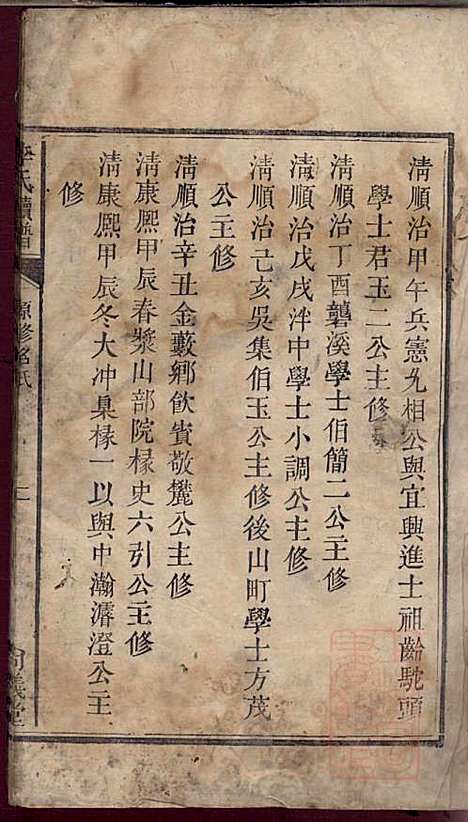 清順治甲午兵憲允相公與宜興進士祖齡駝頭
學士君玉二公主修
清順治丁酉礱溪學士伯簡二公主修
清順治戊戌泮中學士小調公主修
清順治己亥吳集伯玉公主修後山町學士方茂
公主修
清順治辛丑金藪鄉飲賓敬麓公主修
清康熈甲辰春漿山部院椽史六引公主修
清康熈甲辰冬大冲臬椽一以與中瀚濬澄公主
修
氏續譜
源修名氏